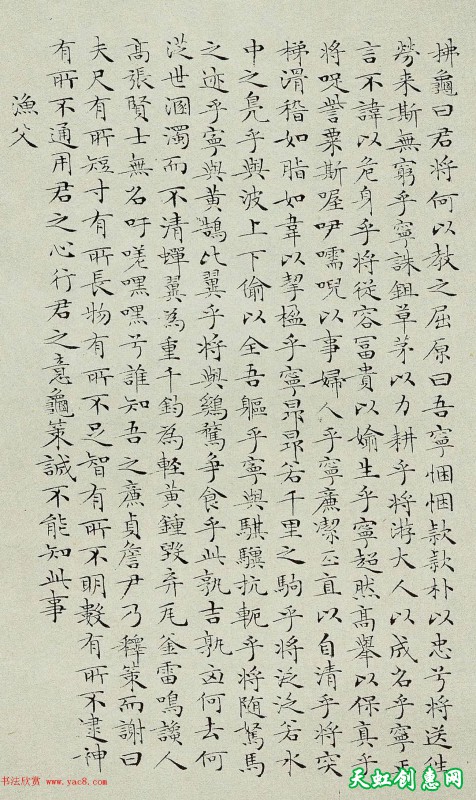 拂龜曰君將何以教之屈原曰吾寧悃悃款款朴以忠兮將送往
勞来斯無窮乎寧誅鉏草茅以力耕乎將游大人以成名乎寧正
言不諱以危身乎將從容冨貴以媮生乎寧超然髙舉以保真乎
將哫訾粟斯喔咿嚅唲以事婦人乎寧廉潔正直以自清乎將突
梯滑稽如脂如韋以挈楹乎寧昂昂若千里之駒乎將泛泛若水
中之鳧乎與波上下偷以全吾軀乎寧與騏驥抗軛乎將随駑馬
之迹乎寧與黄鵠比翼乎將與鷄鶩争食乎此孰吉孰凶何去何
從世溷濁而不清蟬翼為重千鈞為輕黄鍾毁弃瓦釜雷鳴讒人
髙張賢士無名吁嗟嘿嘿兮誰知吾之廉貞詹尹乃釋策而謝曰
夫尺有所短寸有所長物有所不足智有所不明數有所不逮神
有所不通用君之心行君之意龜策誠不能知此事
漁父
书法欣赏 www.yac8.com
天虹创意网